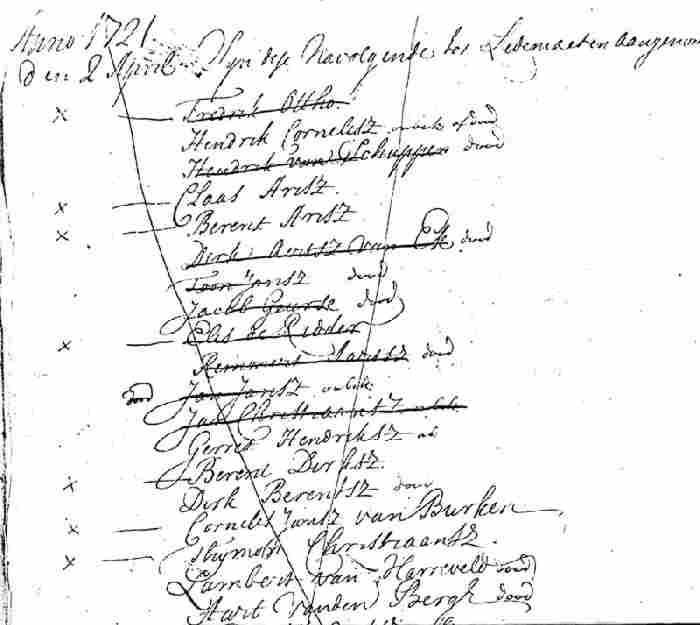 Anno 1721.
den 2 April Zijn dese Navolgende tot Ledematen aangenom
x — Fredrik Ottho
Hendrik Cornelisz
Hendrik van Schuppen dood
Claas Arisz.
x — Berent Arisz
x — Dirk Aertsz van Ek dood
Toon Jansz dood
Jacob Geurse dood
x — Elis de Ridder
Remmert Jansz dood
dood Jan Jansz
Jan Christiaansz
Gerrit Hendriksz
x — Berent Dirksz.
Dirk Berentsz door
x — Cornelis Jansz van Burken
x — Christiaansz.
Lambert van Harreveld dood
Hart vanden Bergh dood